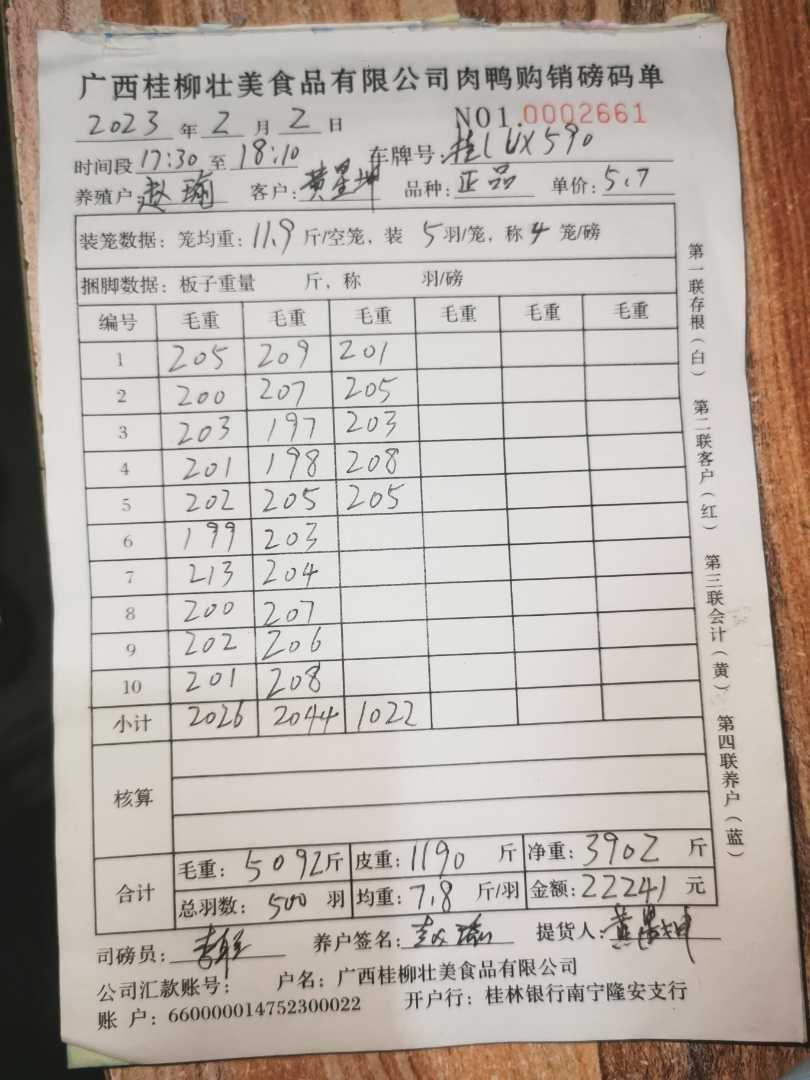 广西桂柳壮美食品有限公司肉鸭购销磅码单
2023年2月2日 NO1.0002661
时间段17:30至18:10 车牌号:桂LUX590
养殖户:赵瑜 客户:黄星坤 品种:正品 单价:5.7
装笼数据：笼均重：11.9斤/空笼，装 5羽/笼，称4笼/磅
捆脚数据：板子重量 斤，称 羽/磅
编号 毛重 毛重 毛重 毛重 毛重 毛重
1 205 209 201
2 200 207 205
3 203 197 203
4 201 198 208
5 202 205 205
6 199 203
7 213 204
8 200 207
9 202 206
10 201 208
小计 2026 2044 1022
核算
合计
毛重：5092斤 皮重：1190斤 净重：3902斤
总羽数：500羽 均重：7.8斤/羽 金额：22241元
司磅员： 养户签名：赵瑜 提货人：黄星坤
公司汇款账号： 户名：广西桂柳壮美食品有限公司
账 户：660000014752300022 开户行：桂林银行南宁隆安支行
第一联存根（白） 第二联客户（红） 第三联会计（黄） 第四联养户（蓝）